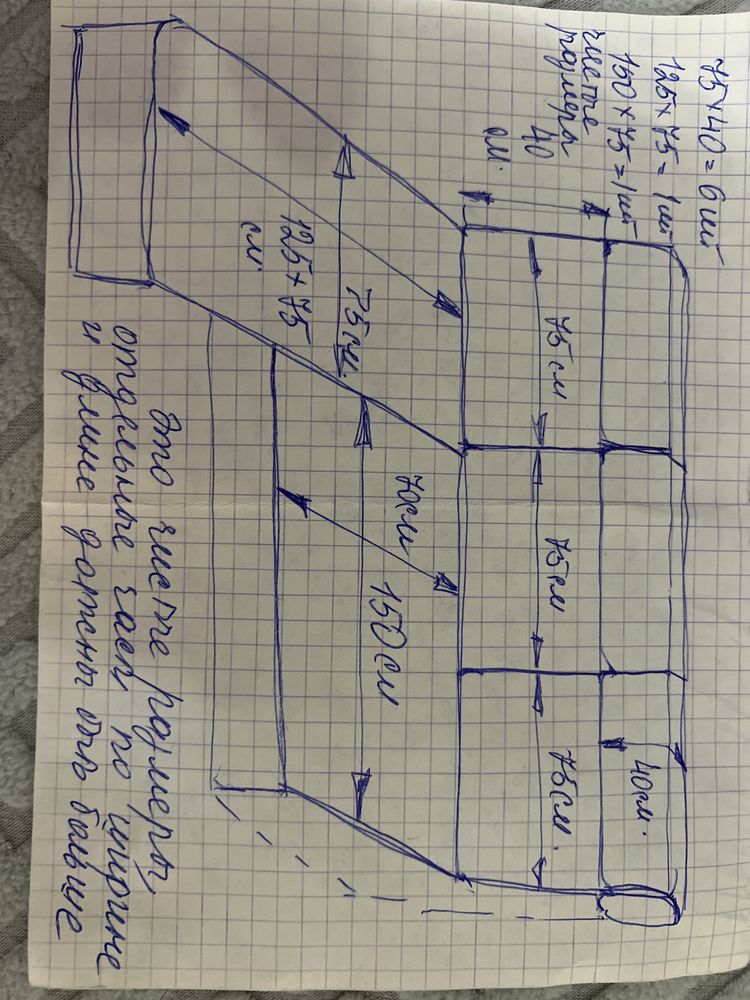 75 × 40 = 6 шт
125 × 75 = 1 шт
150 × 75 = 1 шт
чистые
размеры
40
см.
75 см
75 см
75 см.
40 см.
125 + 75
см.
75 см.
70 см
150 см
Это чистые размеры,
отдельные части по ширине
и длине должны быть больше